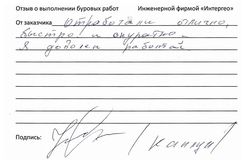 Отзыв о выполнении буровых работ Инженерной фирмой «Интергео»
От заказчика отработали отлично,
быстро и аккуратно.
Я доволен работой
Подпись: